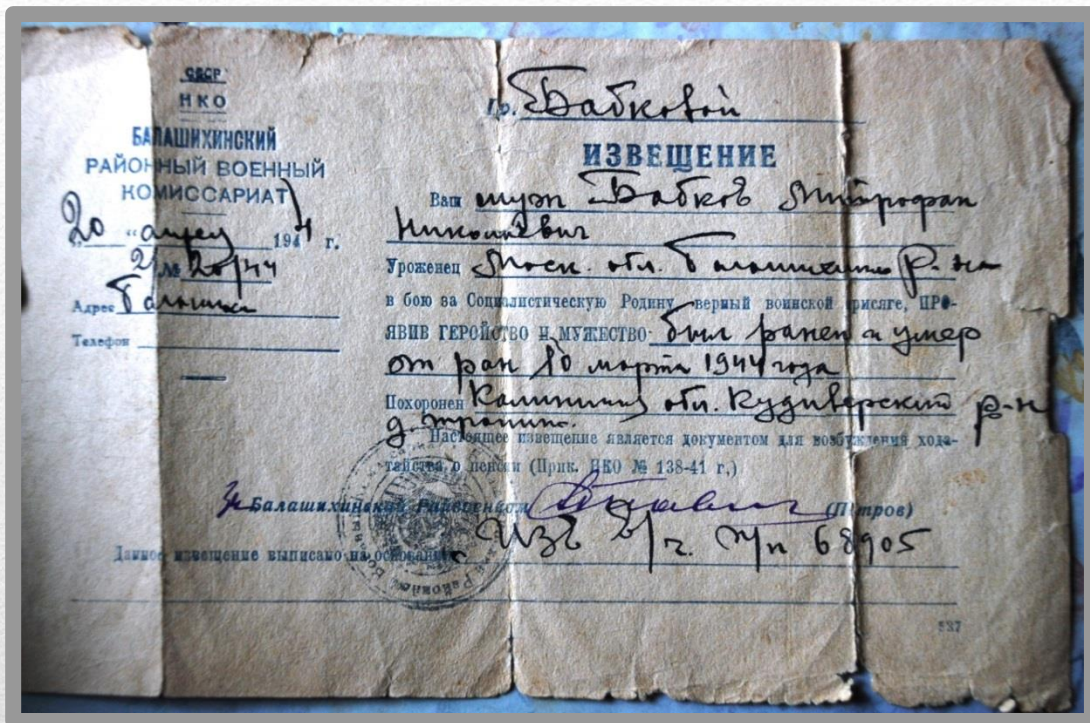 СССР
НКО
БАЛАШИХИНСКИЙ
РАЙОННЫЙ ВОЕННЫЙ
КОМИССАРИАТ
„20 “ апрел 1944 г.
№ 20/44
Адрес Балашиха
Телефон
Гр. Бабковой
ИЗВЕЩЕНИЕ
Ваш муж Бабков Митрофан
Николаевич
Уроженец Моск. обл. Балашихинс р-на
в бою за Социалистическую Родину, верный воинской присяге, ПРО-
ЯВИВ ГЕРОЙСТВО И МУЖЕСТВО был ранен и умер
от ран 10 марта 1944 года
Похоронен Калинин обл. Кудиверский р-н
д.
Настоящее извещение является документом для возбуждения хода-
тайства о пенсии (Прик. НКО № 138-41 г.,)
Балашихинский Райвоенком (Петров)
Данное извещение выписано на основании Изв в/ч. п/п 68905
537